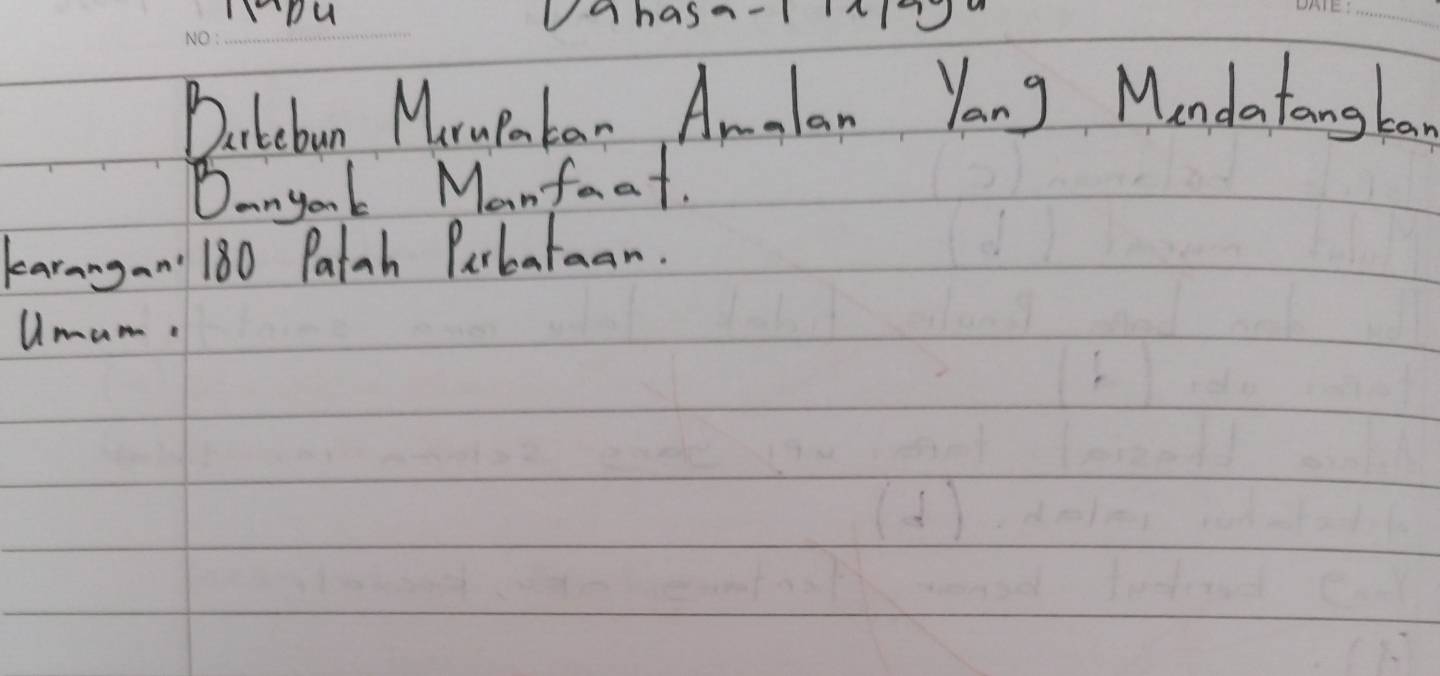 Rabu Bahasa-Melayu
NO: DATE:
Berkebun Merupakan Amalan Yang Mendatangkan
Banyak Manfaat.
karangan: 180 Patah Perkataan.
Umum.